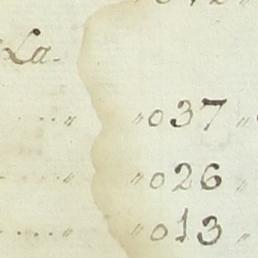 La.
....„ „037„
....„ „026„
....„ „013„